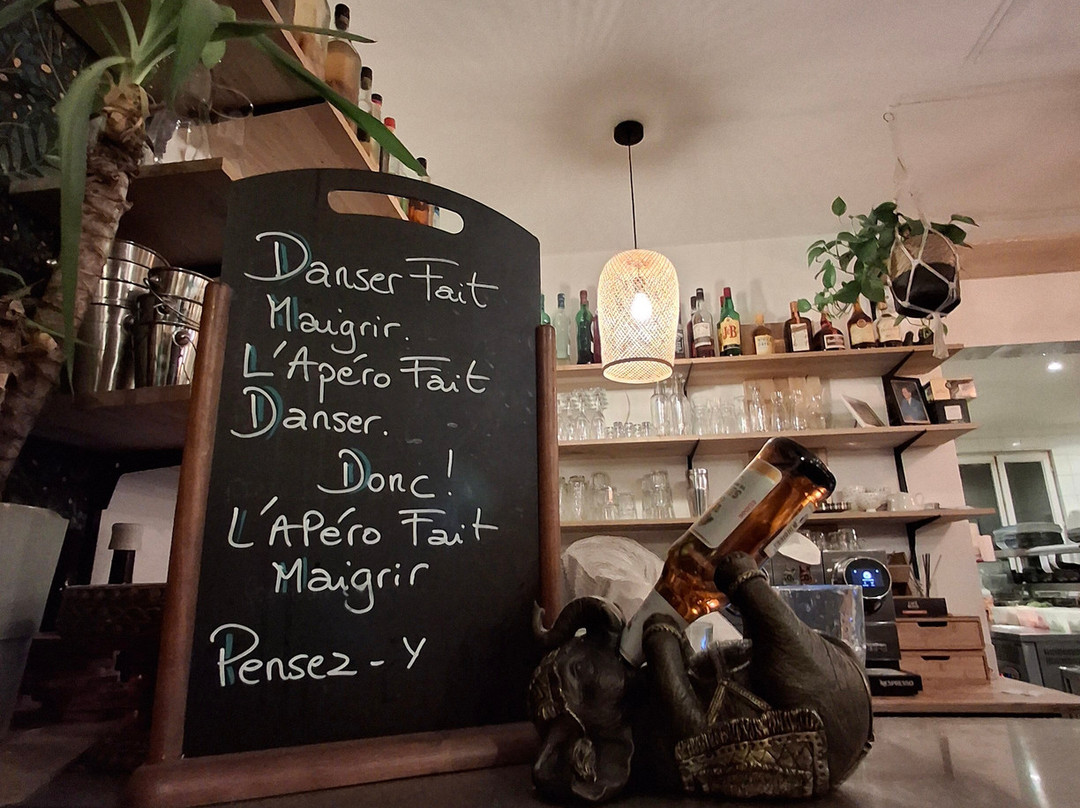 Danser Fait
Maigrir.
L'Apéro Fait
Danser.
Donc!
L'APéro Fait
Maigrir
Pensez-Y
J&B
NESPRESSO